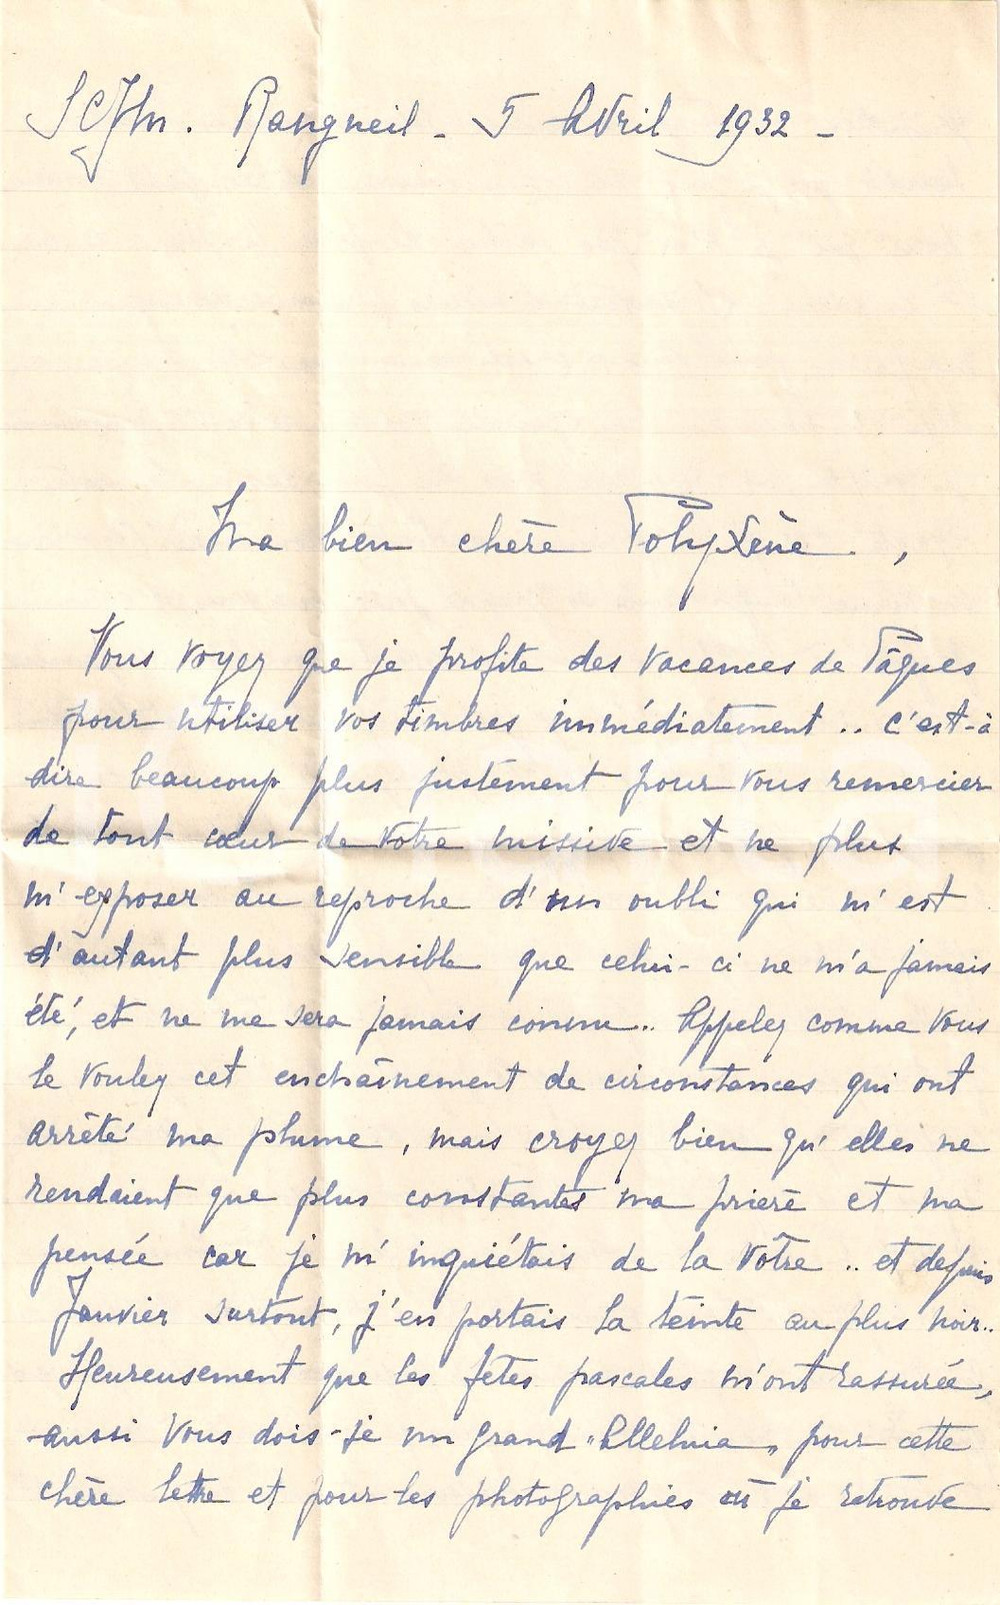 Rangueil - 5 Avril 1932 -
Ma bien chère Polyxène ,
Vous voyez que je profite des vacances de Pâques
pour utiliser vos timbres immédiatement .. c'est-à
dire beaucoup plus justement pour vous remercier
de tout cœur de votre missive et ne plus
m'exposer au reproche d'un oubli qui m'est
d'autant plus sensible que celui-ci ne m'a jamais
été, et ne me sera jamais connu .. Appelez comme vous
le voulez cet enchaînement de circonstances qui ont
arrêté ma plume , mais croyez bien qu'elles ne
rendaient que plus constantes ma prière et ma
pensée car je m'inquiétais de la vôtre .. et depuis
Janvier surtout, j'en portais la teinte au plus noir..
Heureusement que les fêtes pascales m'ont rassurée,
aussi vous dois-je un grand "Alleluia" pour cette
chère lettre et pour les photographies où je retrouve